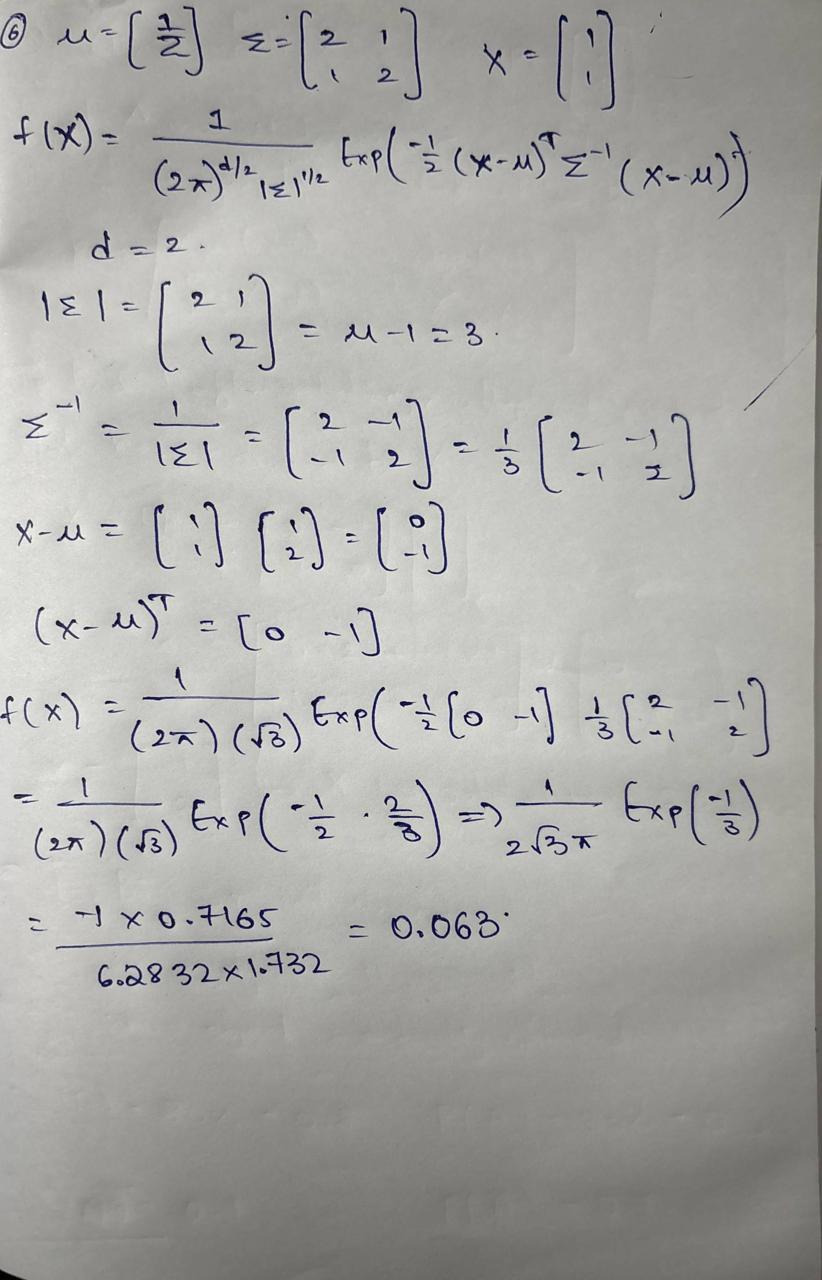 ⑥ μ = [1 2] Σ = [2 1 1 2] x = [1 1]
f(x) = 1 / (2π)^d/2 |Σ|^1/2 Exp(-1/2 (x-μ)^T Σ^-1 (x-μ))
d = 2.
|Σ| = [2 1 1 2] = 4 - 1 = 3.
Σ^-1 = 1/|Σ| = [2 -1 -1 2] = 1/3 [2 -1 -1 2]
x-μ = [1 1] [1 2] = [0 -1]
(x-μ)^T = [0 -1]
f(x) = 1 / (2π)(√3) Exp(-1/2 [0 -1] 1/3 [2 -1 -1 2]
= 1 / (2π)(√3) Exp(-1/2 · 2/3) => 1 / 2√3π Exp(-1/3)
= -1 x 0.7165 / 6.2832 x 1.732 = 0.063.